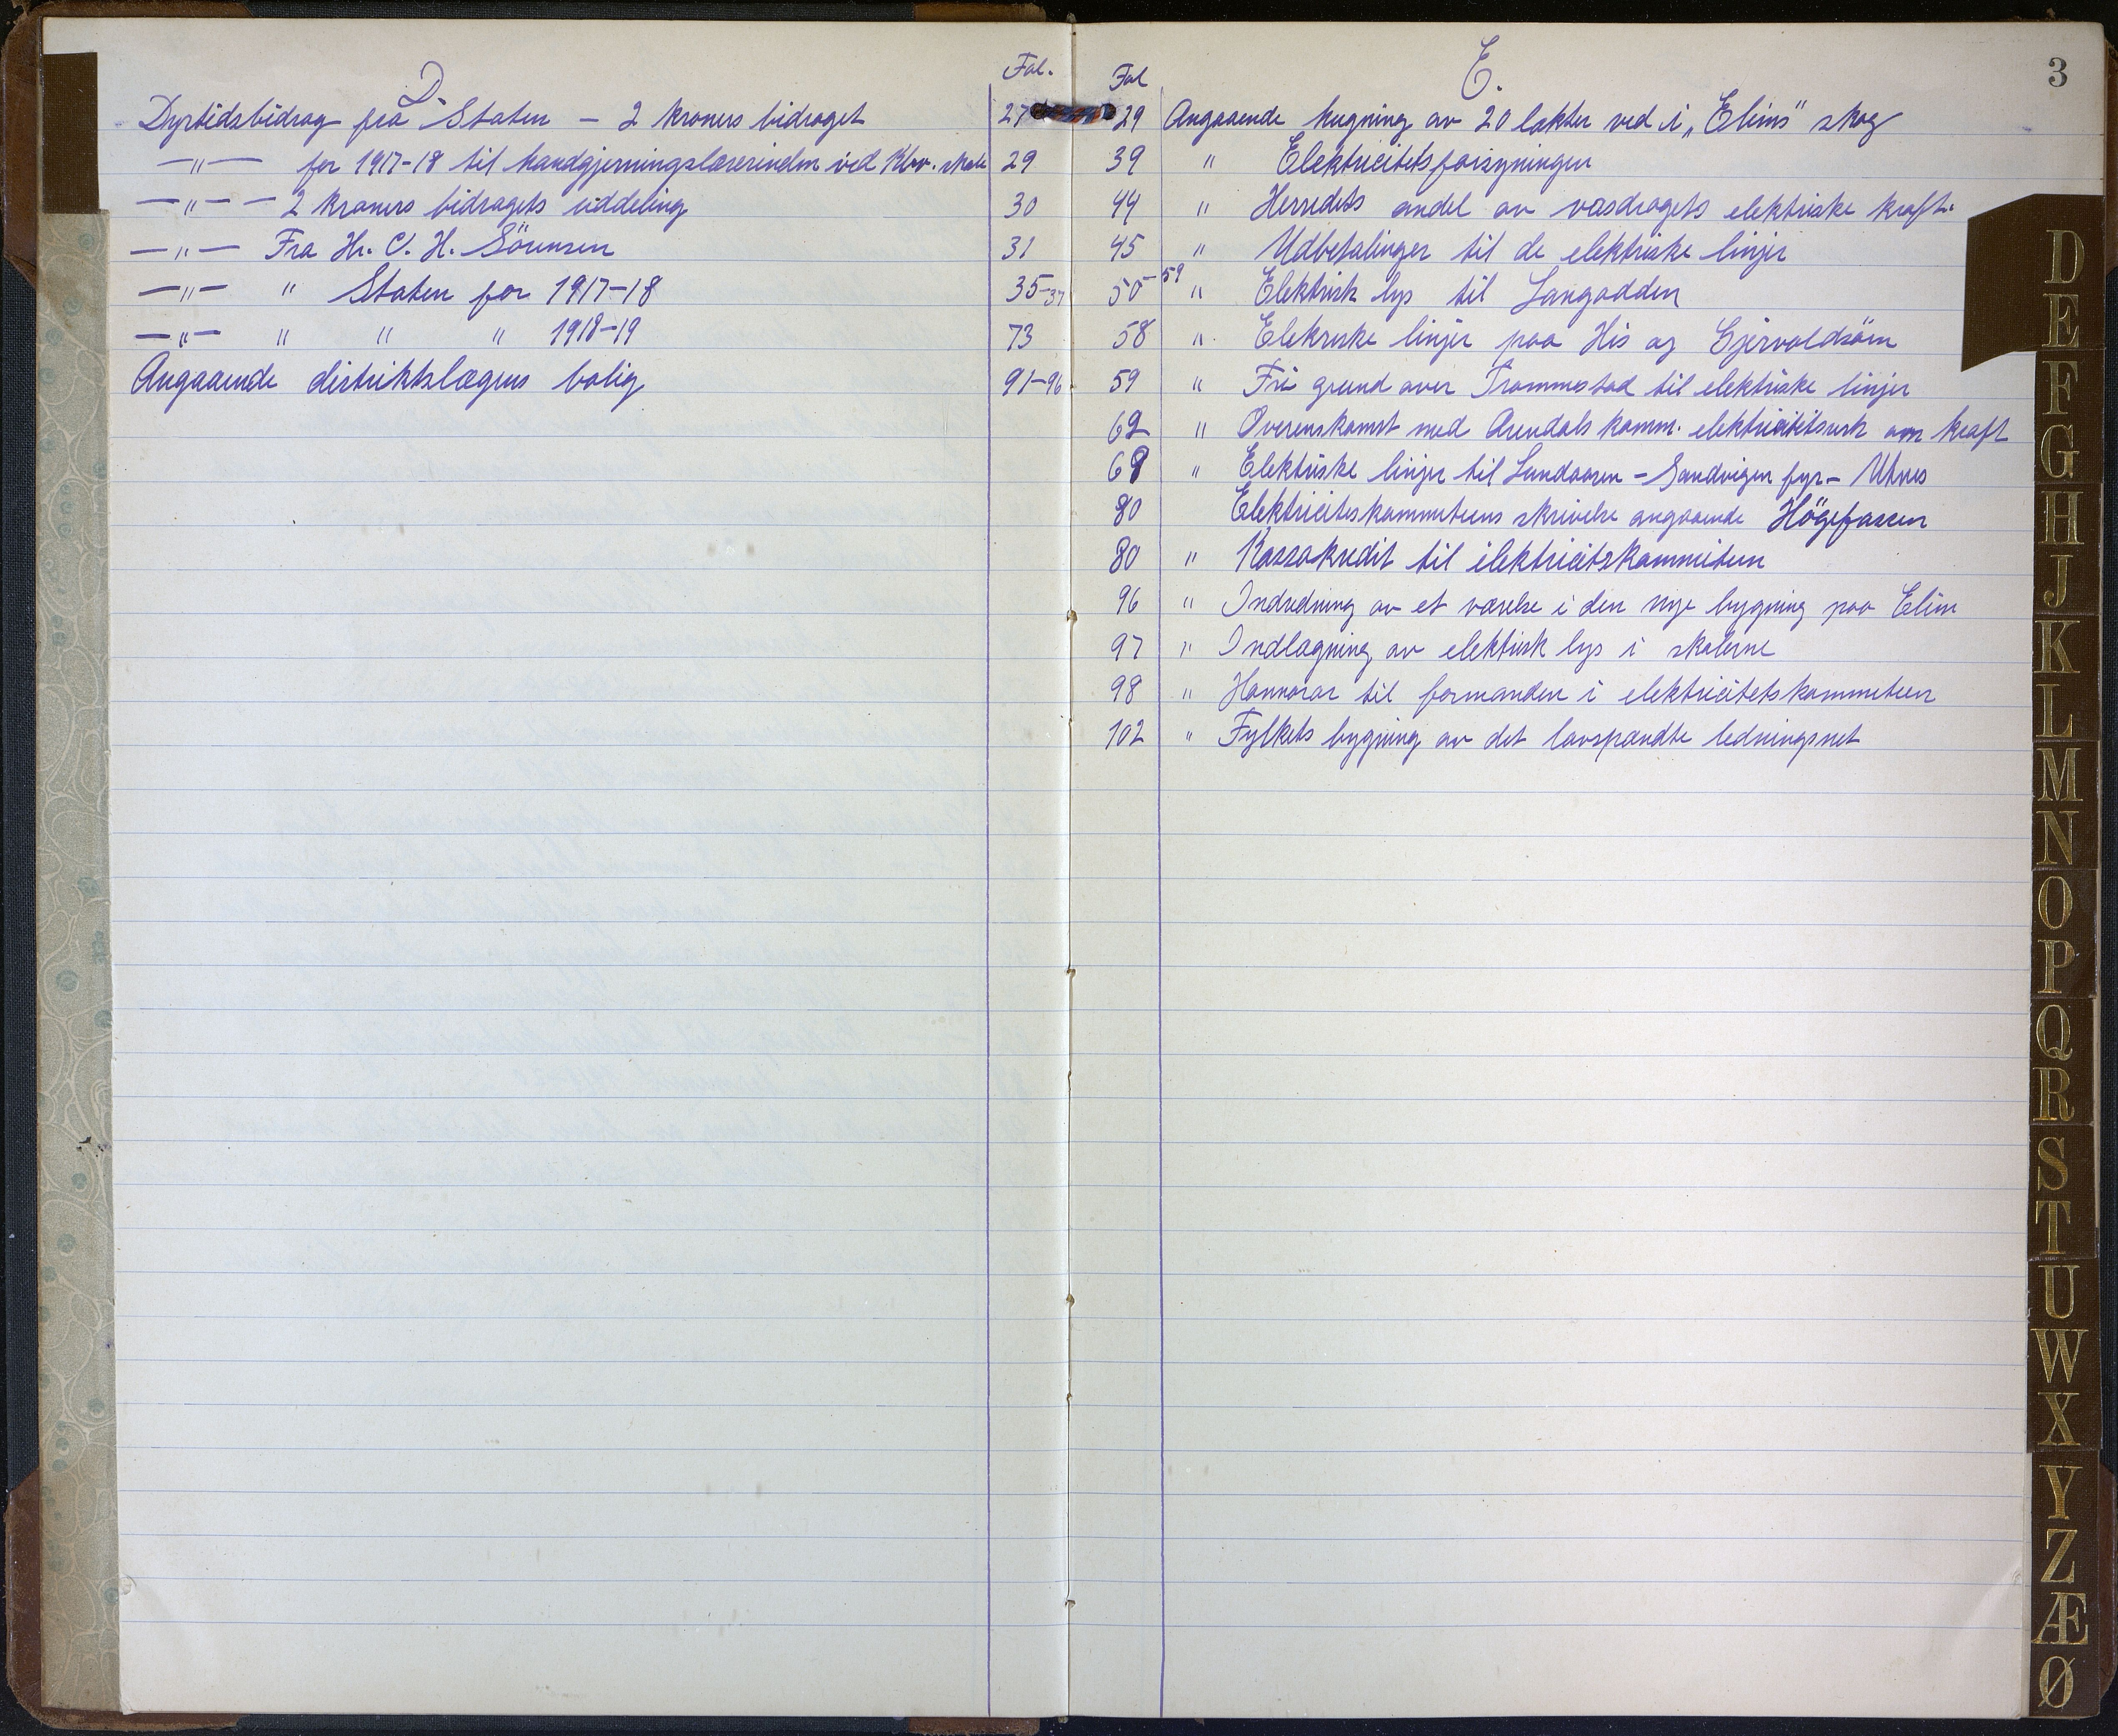 D. Fol.
Dyrtidsbidrag fra Staten - 2 kroners bidraget 27
—"— for 1917-18 til handgjerningslærerinden ved Klov. skole 29
—"— — 2 kroners bidragets uddeling 30
—"— Fra Hr. C. H. Sörensen 31
—"— " Staten for 1917-18 35-37
—"— " " " 1918-19 73
Angaaende distriktslægens bolig 91-96
3
Fol E.
29 Angaaende hugning av 20 lakter ved i "Elims" skog
39 " Elektricitetsforsyningen
44 " Herredets andel av vasdragets elektriske kraft.
45 " Udbetalinger til de elektriske linjer
50-59 " Elektrisk lys til Langodden
58 " Elekriske linjer paa His og Gjervoldsöen
59 " Fri grund over Trommestad til elektriske linjer
62 " Overenskomst med Arendals komm. elektricitetsverk om kraft
68 " Elektriske linjer til Lundaasen - Sandvigen fyr - Utnes
80 Elektricitetskommiteens skrivelse angaaende Högefossen
80 " Kassakredit til elektricitskommiteen
96 " Indredning av et værelse i den nye bygning paa Elim
97 " Indlægning av elektrisk lys i skolerne
98 " Honnorar til formanden i elektricitetskommiteen
102 " Fylkets bygning av det lavspændte ledningsnet
D
E
F
G
H
J
K
L
M
N
O
P
Q
R
S
T
U
W
X
Y
Z
Æ
Ø